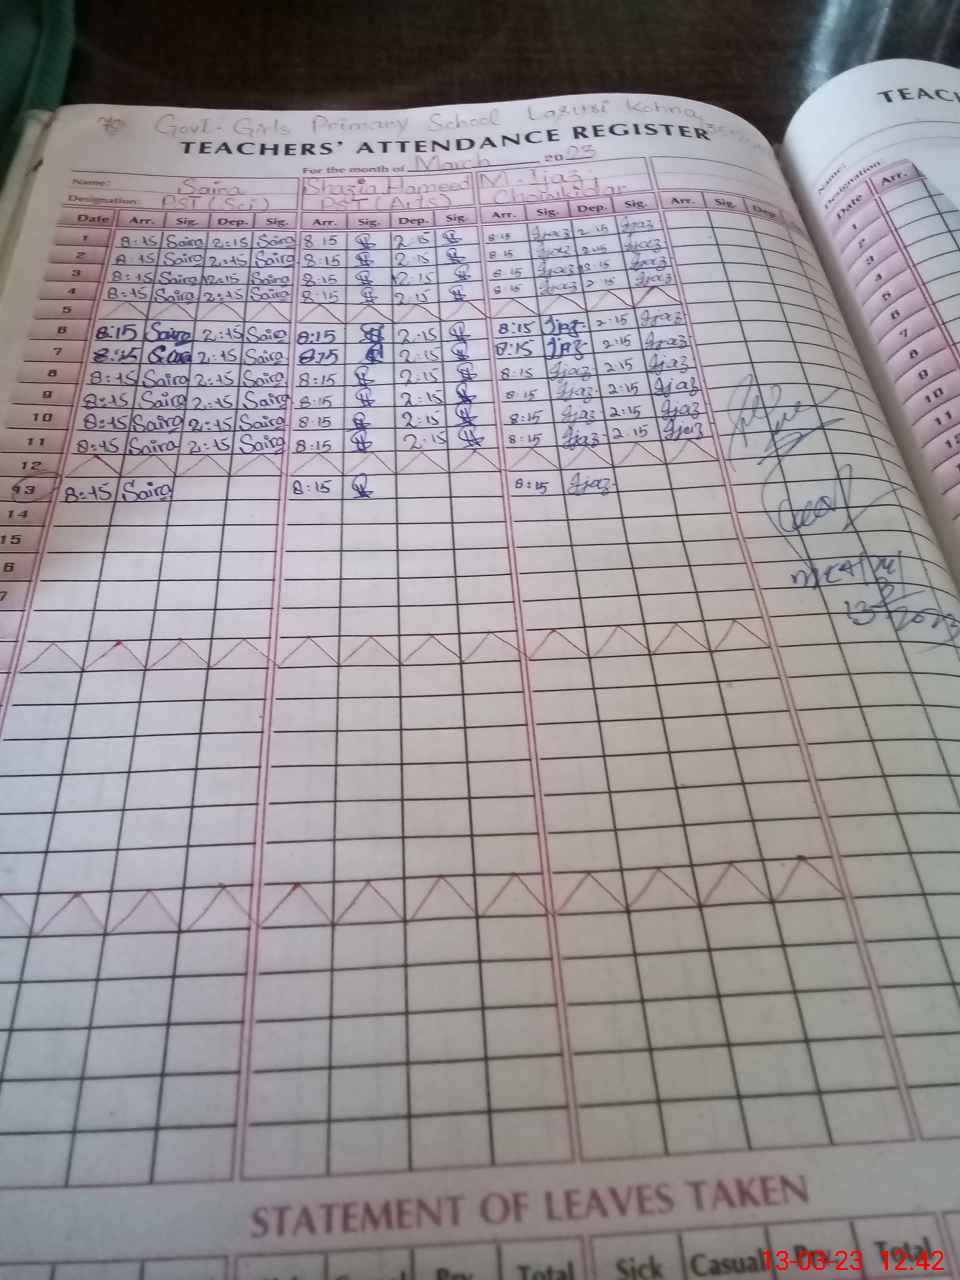 Govt. Girls Primary School
TEACHERS' ATTENDANCE REGISTER
For the month of March 2023
Name: Saira Shazia Hameed M. Ijaz
Designation: PST (Sci) PST (Arts) Chowkidar
Date Arr. Sig. Dep. Sig. Arr. Sig. Dep. Sig. Arr. Sig. Dep. Sig. Arr. Sig. Dep
1 8:15 Saira 2:15 Saira 8:15 2:15 8:15 Ijaz 2:15 Ijaz
2 8:15 Saira 2:15 Saira 8:15 2:15 8:15 Ijaz 2:15 Ijaz
3 8:15 Saira 2:15 Saira 8:15 2:15 8:15 Ijaz 2:15 Ijaz
4 8:15 Saira 2:15 Saira 8:15 2:15 8:15 Ijaz 2:15 Ijaz
5
6 8:15 Saira 2:15 Saira 8:15 2:15 8:15 Ijaz 2:15 Ijaz
7 8:15 Saira 2:15 Saira 8:15 2:15 8:15 Ijaz 2:15 Ijaz
8 8:15 Saira 2:15 Saira 8:15 2:15 8:15 Ijaz 2:15 Ijaz
9 8:15 Saira 2:15 Saira 8:15 2:15 8:15 Ijaz 2:15 Ijaz
10 8:15 Saira 2:15 Saira 8:15 2:15 8:15 Ijaz 2:15 Ijaz
11 8:15 Saira 2:15 Saira 8:15 2:15 8:15 Ijaz 2:15 Ijaz
12
13 8:15 Saira 8:15 8:15 Ijaz
14
15
6
7
STATEMENT OF LEAVES TAKEN
Total Sick Casual Total
TEACH
Name:
Designation
Date Arr.
1
2
3
4
5
6
7
8
9
10
11
12
13-03-23 12:42